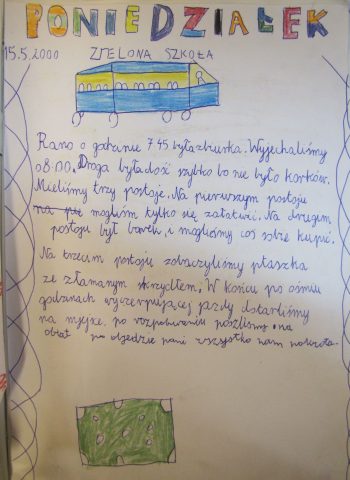 PONIEDZIAŁEK
15.5.2000 ZIELONA SZKOŁA
Rano o godzinie 7.45 była zbiurka. Wyjechaliśmy
o 8.00. Droga była dość szybko bo nie było korków.
Mieliśmy trzy postoje. Na pierwszym postoju
na pie mogliśm tylko się załatwić. Na drugim
postoju był barek, i mogliśmy coś sobie kupić.
Na trzecim postoju zobaczyliśmy ptaszka
ze złamanym skrzydłem. W końcu po ośmiu
godzinach wyczerpującej jazdy dotarliśmy
na miejsce. po rozpakowaniu poszliśmy na
obiat po objedzie pani wszystko nam pokazała.